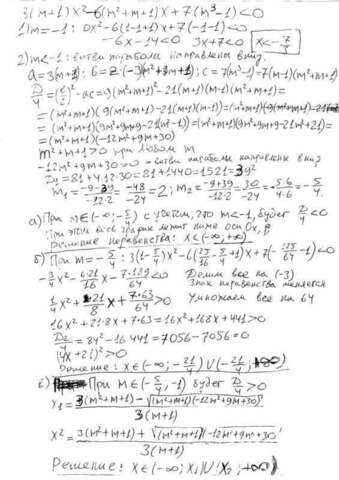 3(m+1)x²-6(m²+m+1)x+7(m³-1)<0
1) m=-1: 0x²-6(1-1+1)x+7(-1-1)<0
-6x-14<0 3x+7<0 x<-7/3
2) m<-1: ветви параболы направлены вниз.
a=3(m+1); b=2·(-3)(m²+m+1); c=7(m³-1)=7(m-1)(m²+m+1)
D/4=(b/2)²-ac=9(m²+m+1)²-21(m+1)(m-1)(m²+m+1)=
=(m²+m+1)(9(m²+m+1)-21(m+1)(m-1))=(m²+m+1)(9(m²+m+1)-21
=(m²+m+1)(9m²+9m+9-21(m²-1))=(m²+m+1)(9m²+9m+9-21m²+21)=
=(m²+m+1)(-12m²+9m+30)
m²+m+1>0 при любом m
-12m²+9m+30=0 - ветви параболы направлены вниз
D₂=81+4·12·30=81+1440=1521=39²
m₁=(-9-39)/(-12·2)=-48/-24=2; m₂=(-9+39)/(-12·2)=-30/24=-5·6/4·6=-5/4.
а) При m∈(-∞;-5/4) с учетом, что m<-1, будет D/4<0
При этом весь график лежит ниже оси 0x,
Решение неравенства: x∈(-∞;+∞)
б) При m=-5/4: 3(1-5/4)x²-6(25/16-5/4+1)x+7(-125/64-1)<0
-3/4x²-6·21/16x-7·189/64<0 Делим все на (-3)
Знак неравенства меняется
1/4x²+21/8x+7·63/64>0 Умножаем все на 64
16x²+21·8x+7·63=16x²+168x+441>0
D₂/4=84²-16·441=7056-7056=0
(4x+21)²>0
Решение: x∈(-∞;-21/4)∪(-21/4;+∞)
в) При m∈(-5/4;-1) будет D/4>0
x₁=(3(m²+m+1)-√((m²+m+1)(-12m²+9m+30)))/(3(m+1))
x²=(3(m²+m+1)+√((m²+m+1)(-12m²+9m+30)))/(3(m+1))
Решение: x∈(-∞;x₁)∪(x₂;+∞)